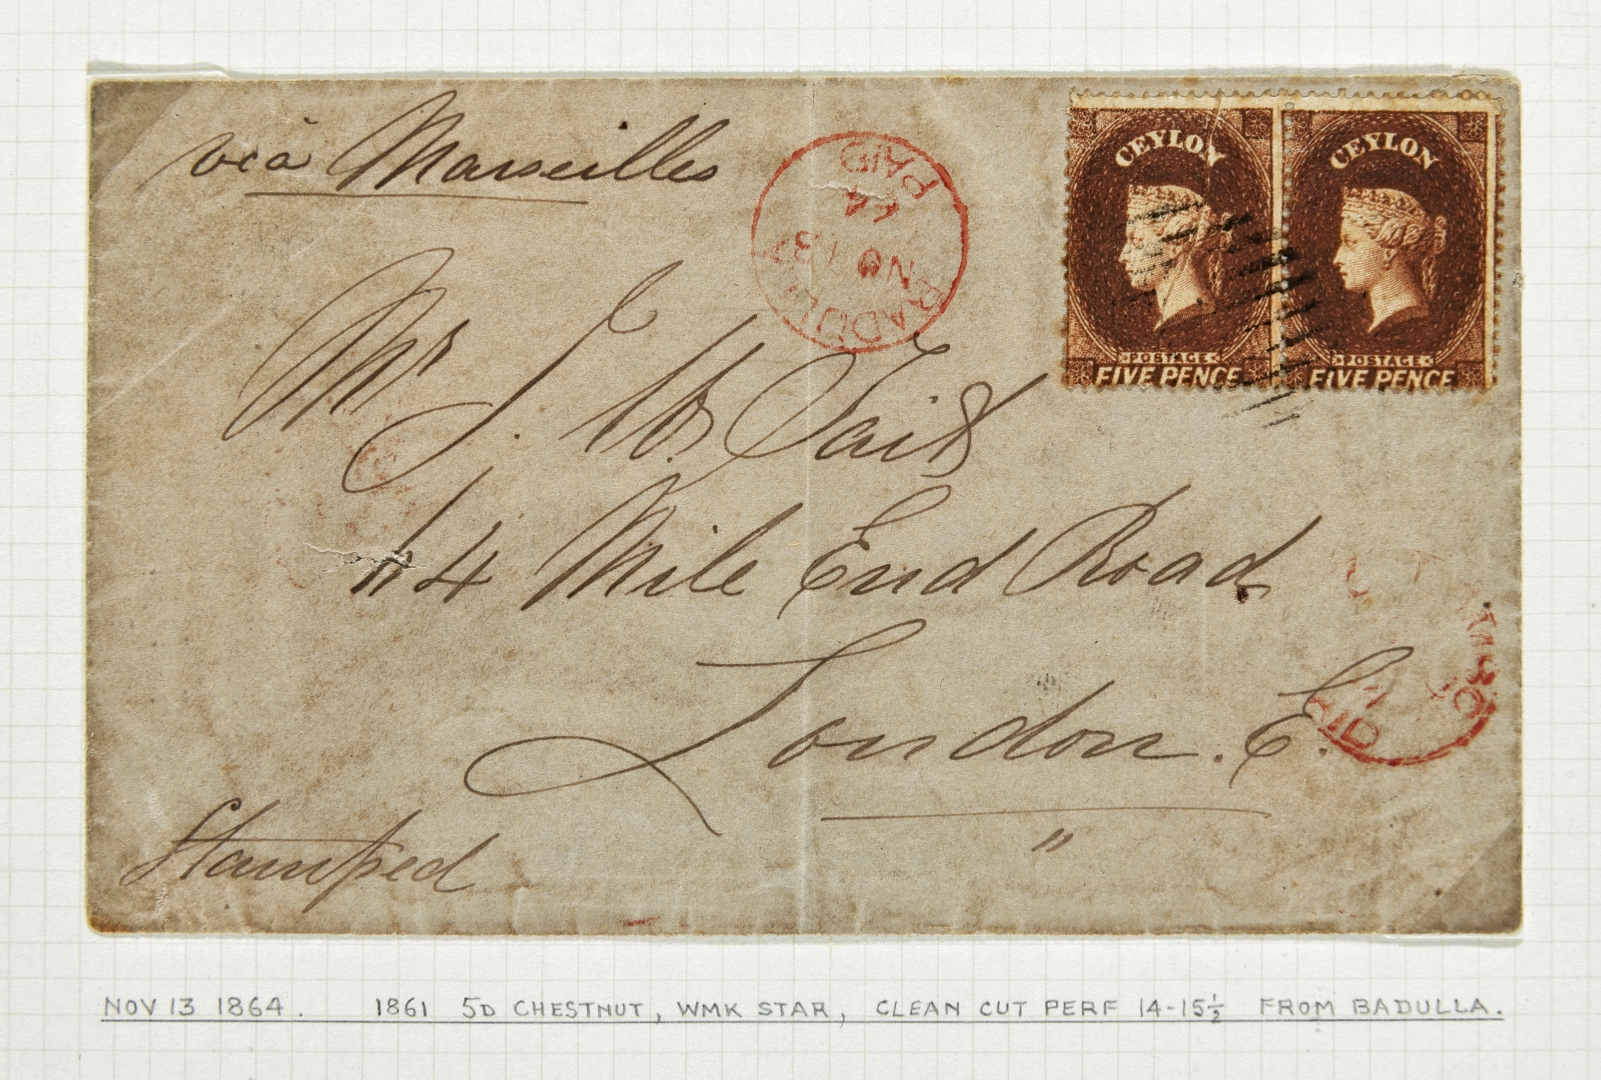 via Marseilles
PAID
64
NO 13
BADULLA
CEYLON
POSTAGE
FIVE PENCE
CEYLON
POSTAGE
FIVE PENCE
Mr J. Tait
44 Mile End Road
London. E.
"
PAID
Stamped
NOV 13 1864. 1861 5D CHESTNUT, WMK STAR, CLEAN CUT PERF 14-15½ FROM BADULLA.